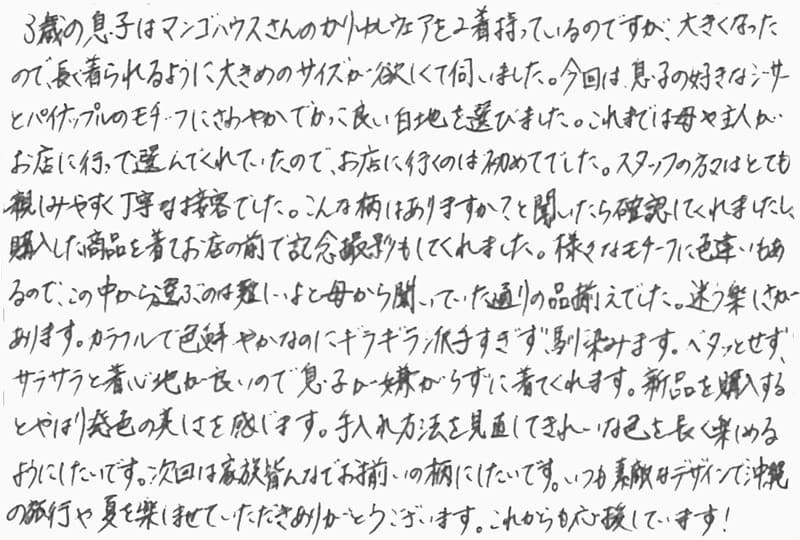 3歳の息子はマンゴハウスさんのかりゆしウェアを2着持っているのですが、大きくなった
ので、長く着られるように大きめのサイズが欲しくて伺いました。今回は、息子の好きなシーサー
とパイナップルのモチーフにさわやかでかっこ良い白地を選びました。これまでは母や主人が
お店に行って選んでくれていたので、お店に行くのは初めてでした。スタッフの方々はとても
親しみやすく丁寧な接客でした。こんな柄はありますか?と聞いたら確認してくれましたし、
購入した商品を着てお店の前で記念撮影もしてくれました。様々なモチーフに色違いもあ
るので、この中から選ぶのは難しいよと母から聞いていた通りの品揃えでした。迷う楽しさが
あります。カラフルで色鮮やかなのにギラギラ派手すぎず、馴染みます。ベタッとせず、
サラサラと着心地が良いので息子が嫌がらずに着てくれます。新品を購入する
とやはり発色の美しさを感じます。手入れ方法を見直してきれーいな色を長く楽しめる
ようにしたいです。次回は家族皆んなでお揃いの柄にしたいです。いつも素敵なデザインで沖縄
の旅行や夏を楽しませていただきありがとうございます。これからも応援しています!